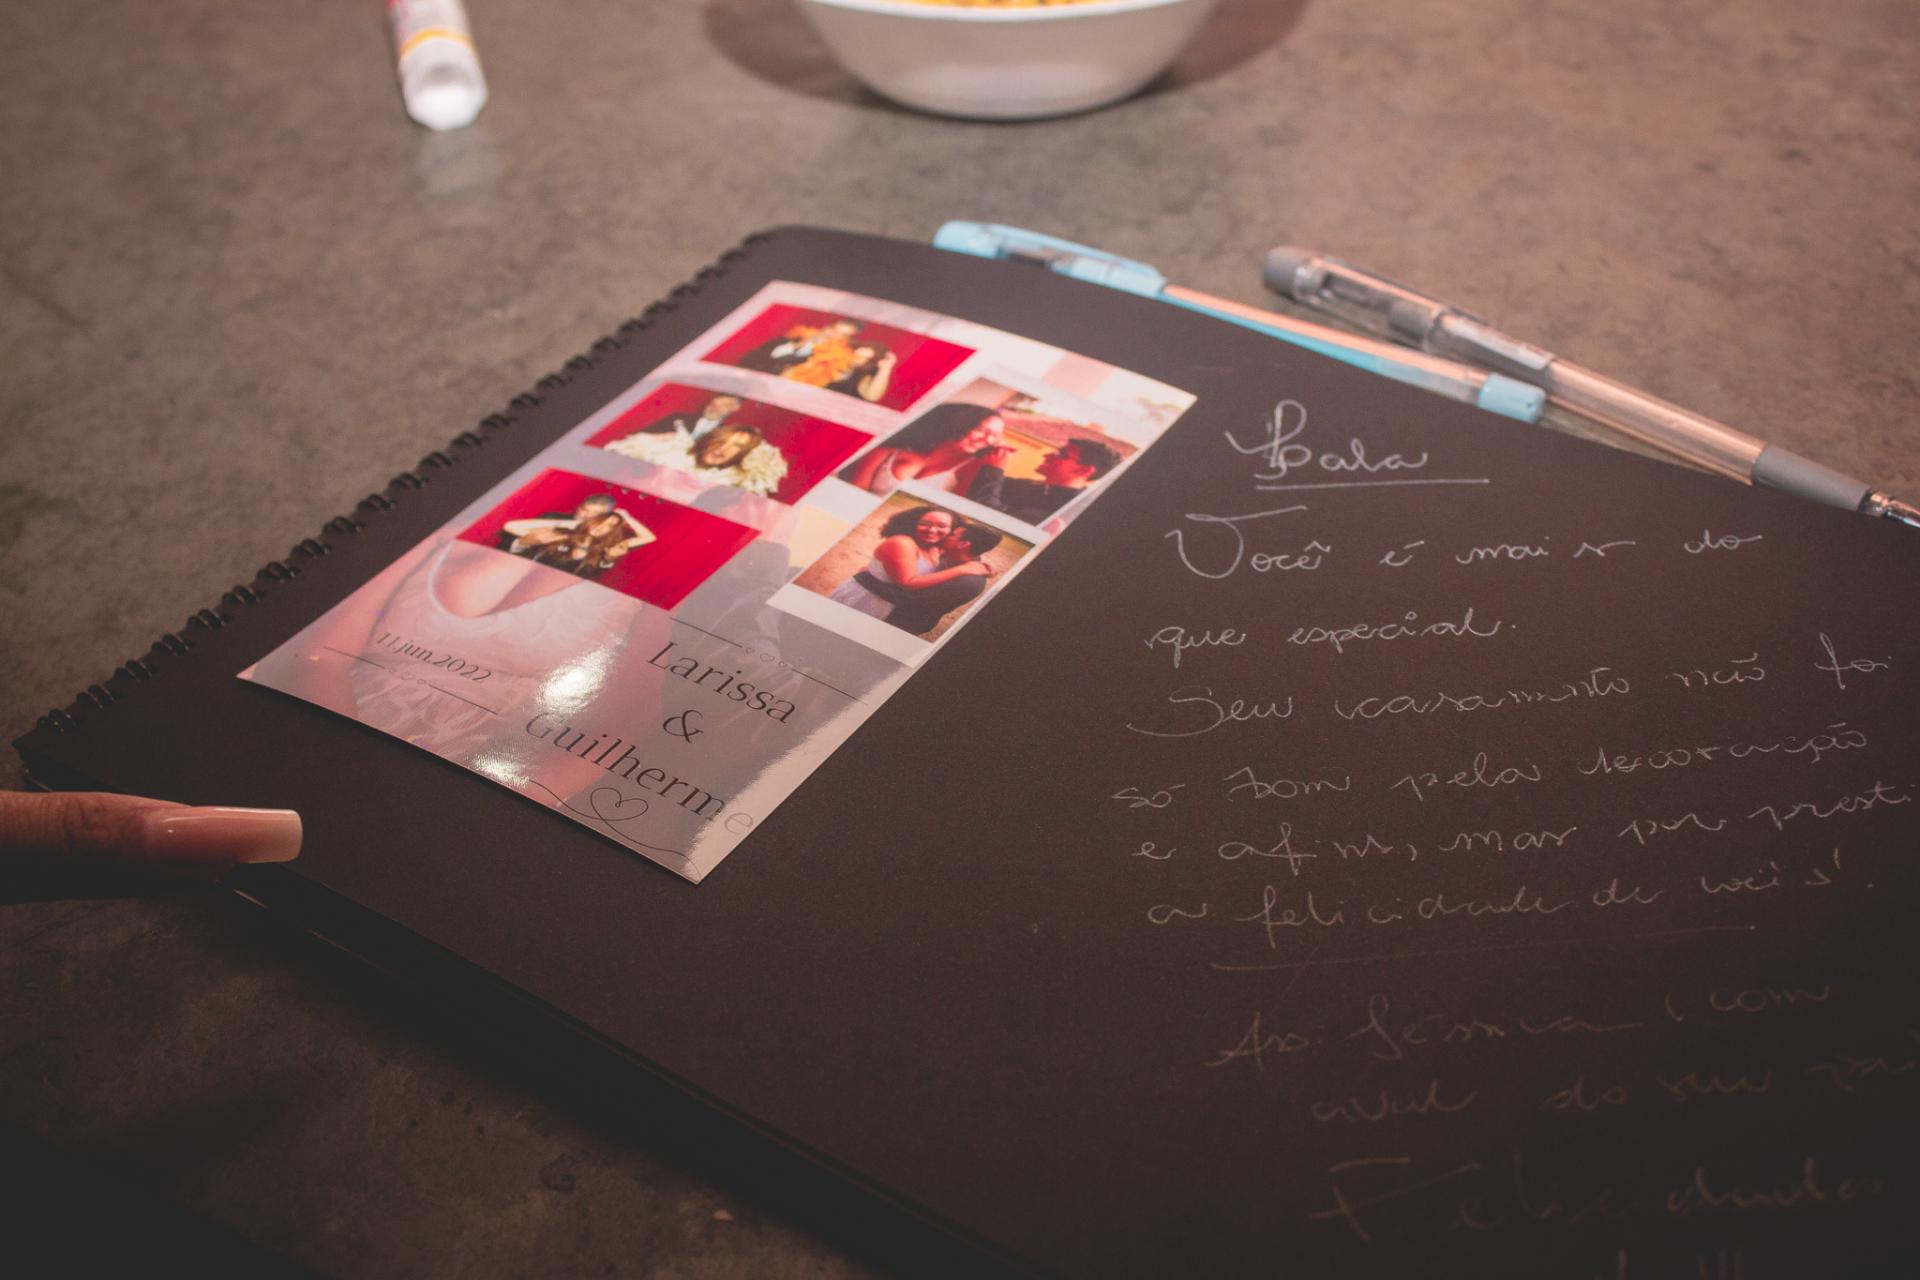 11.jun.2022
Larissa
&
Guilherme
Lala
Você é mais do
que especial.
Seu casamento não foi
só bom pela decoração
e afins, mas por presti
a felicidade de vocês!
Ass: Jéssica (com
aval do seu
Felicidades
!!!